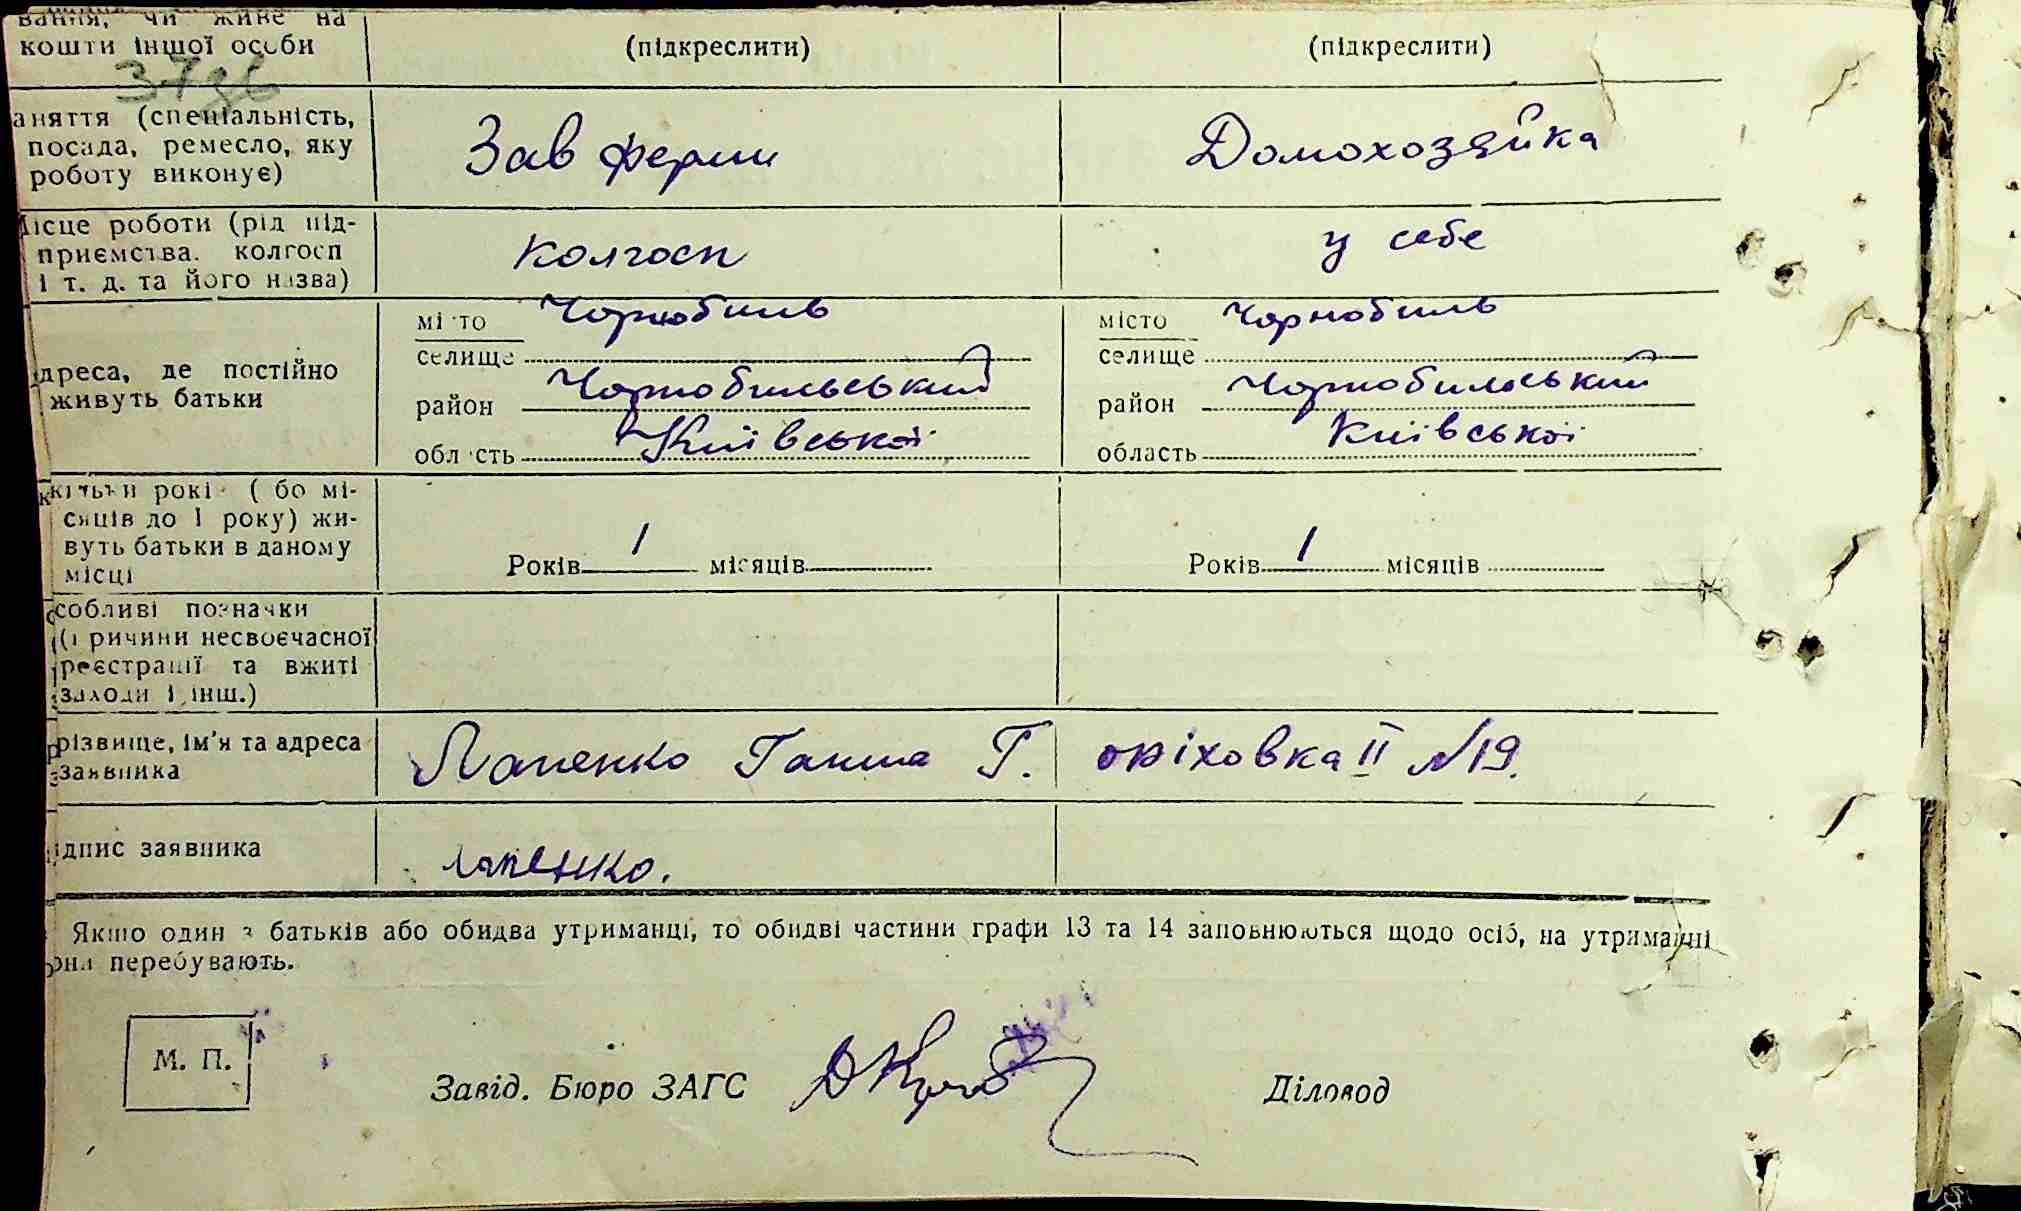 вання, чи живе на
кошти іншої особи (підкреслити) (підкреслити)
аняття (спеціальність,
посада, ремесло, яку
роботу виконує) Зав ферми Домохозяйка
ісце роботи (рід під-
приємства. колгосп
і т. д. та його назва) колгосп у себе
місто Чорнобиль місто Чорнобиль
селище селище
дреса, де постійно
живуть батьки
район Чорнобильський район Чорнобильський
область Київської область Київської
кільки років ( бо мі-
сяців до 1 року) жи-
вуть батьки в даному
місці Років 1 місяців Років 1 місяців
собливі позначки
(причини несвоєчасної
реєстрації та вжиті
заходи і інш.)
різвище, ім'я та адреса
заявника Лапенко Ганна Г. оріховка II №19.
ідпис заявника лапенко.
Якщо один з батьків або обидва утриманці, то обидві частини графи 13 та 14 заповнюються щодо осіб, на утриманні
они перебувають.
М. П.
Завід. Бюро ЗАГС Діловод